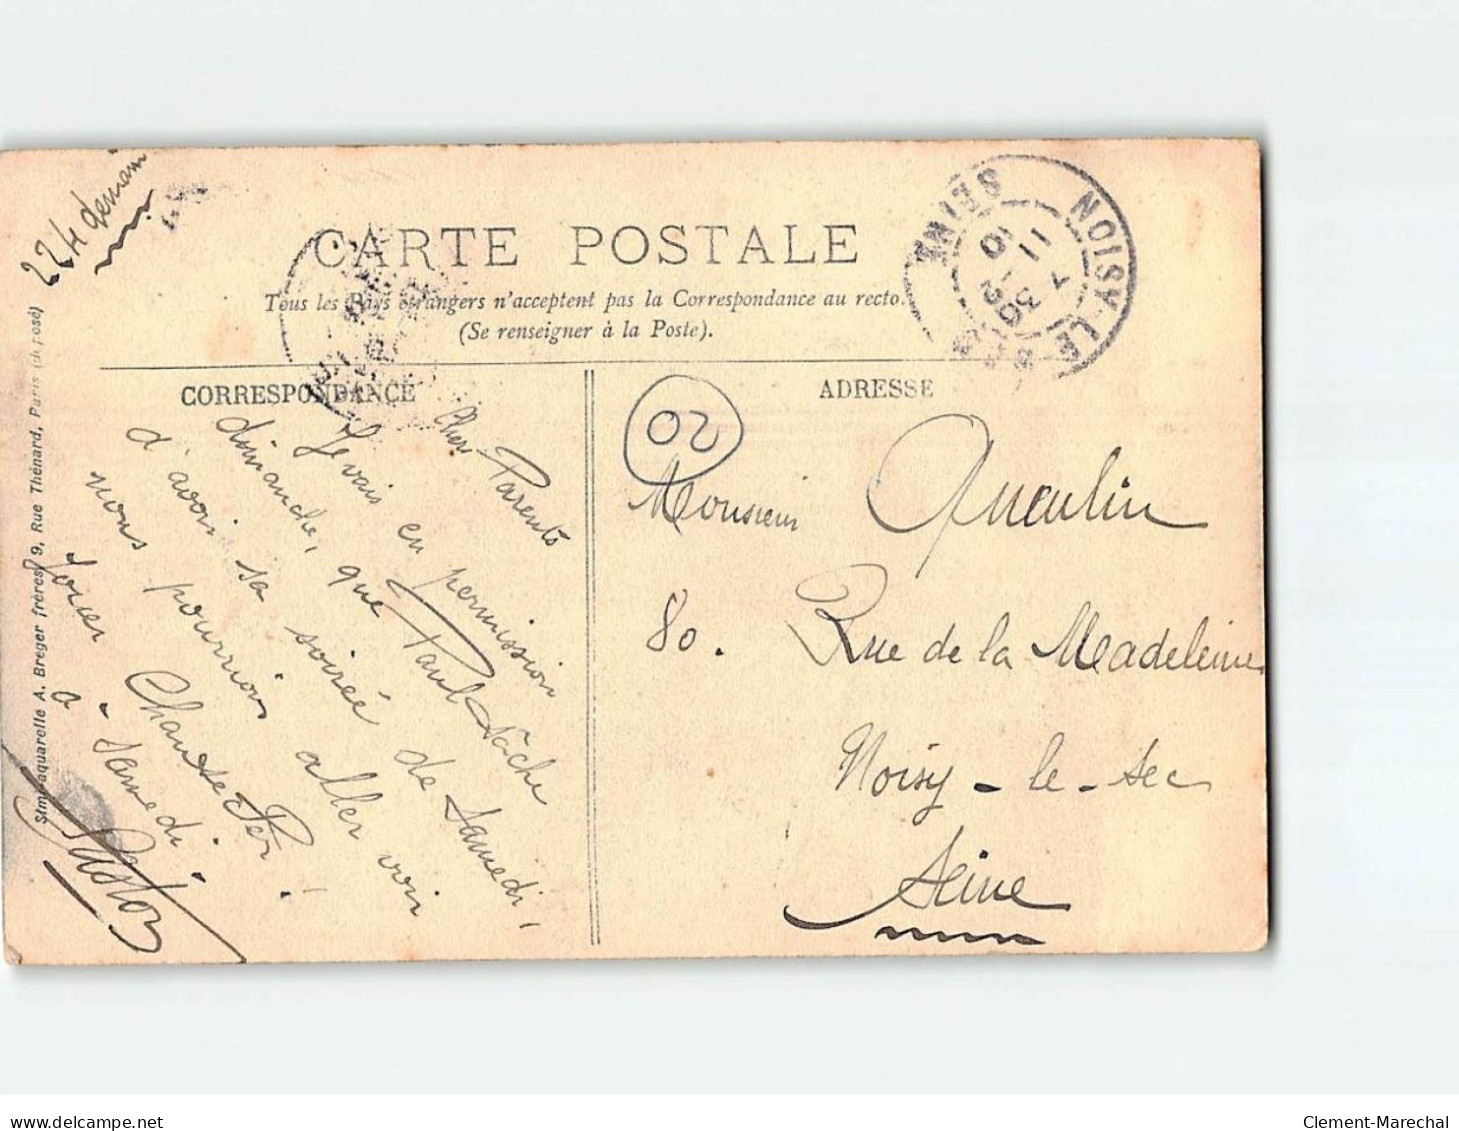 224 demain
CARTE POSTALE
Tous les Pays étrangers n'acceptent pas la Correspondance au recto.
(Se renseigner à la Poste).
CORRESPONDANCE
ADRESSE
NOISY-LE-SEC
SEINE
11 7
20
Chers Parents
Je vais en permission
dimanche, que Paul tâche
d'avoir sa soirée de Samedi,
nous pourrions aller voir
jouer Chanteclair!
à Samedi.
Gaston
Monsieur Queulin
80. Rue de la Madeleine
Noisy-le-Sec
Seine
Simili-aquarelle A. Breger frères, 9, Rue Thénard, Paris (déposé)
www.delcampe.net
Clement-Marechal